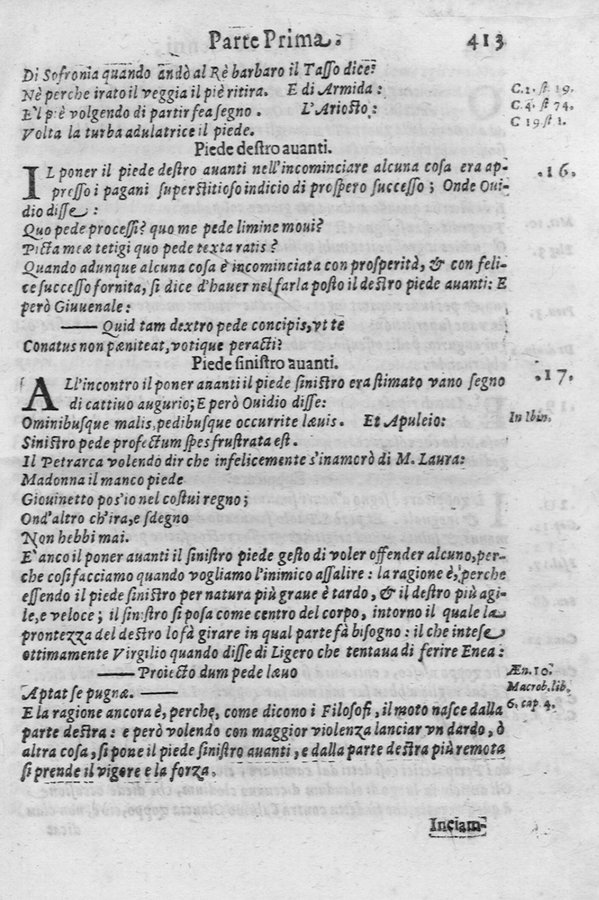 Parte Prima. 413
Di Sofronia quando andò al Rè barbaro il Tasso dice:
Nè perche irato il veggia il piè ritira. E di Armida: C. 2. st. 19.
E'l piè volgendo di partir fea segno. L'Ariosto: C. 4. st 74.
Volta la turba adulatrice il piede. C 19 st 1.
Piede destro auanti.
IL poner il piede destro auanti nell'incominciare alcuna cosa era ap- .16.
presso i pagani superstitioso indicio di prospero successo; Onde Oui-
dio disse:
Quo pede processi? quo me pede limine moui?
Picta meæ tetigi quo pede texta ratis?
Quando adunque alcuna cosa è incominciata con prosperità, & con feli-
ce successo fornita, si dice d'hauer nel farla posto il destro piede auanti: E
però Giuuenale:
—— Quid tam dextro pede concipis, vt te
Conatus non pæniteat, votique peracti?
Piede sinistro auanti.
ALl'incontro il poner auanti il piede sinistro era stimato vano segno .17.
di cattiuo augurio; E però Ouidio disse:
Ominibusque malis, pedibusque occurrite læuis. Et Apuleio: In Ibin.
Sinistro pede profectum spes frustrata est.
Il Petrarca volendo dir che infelicemente s'inamorò di M. Laura:
Madonna il manco piede
Giouinetto pos'io nel costui regno;
Ond'altro ch'ira, e sdegno
Non hebbi mai.
E' anco il poner auanti il sinistro piede gesto di voler offender alcuno, per-
che cosi facciamo quando vogliamo l'inimico assalire: la ragione è, perche
essendo il piede sinistro per natura più graue è tardo, & il destro più agi-
le, e veloce; il sinistro si posa come centro del corpo, intorno il quale la
prontezza del destro lo fà girare in qual parte fà bisogno: il che intese
ottimamente Virgilio quando disse di Ligero che tentaua di ferire Enea:
—— Proiecto dum pede læuo Æn. 10.
Aptat se pugnæ. —— Macrob. lib.
E la ragione ancora è, perche, come dicono i Filosofi, il moto nasce dalla 6. cap. 4.
parte destra: e però volendo con maggior violenza lanciar vn dardo, ò
altra cosa, si pone il piede sinistro auanti, e dalla parte destra più remota
si prende il vigore e la forza.
Inciam-